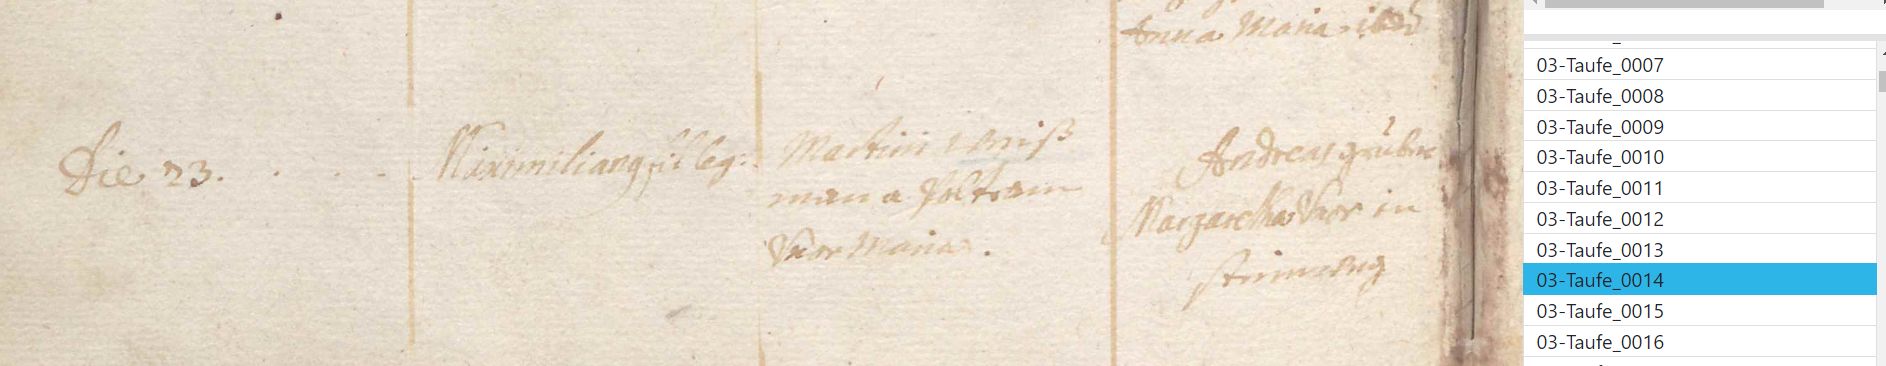 Anna Maria
Die 23. . . . .
Maximilianus fil: leg:
Martini
man a
Vxor Maria.
Andreas grúber
Margaretha Vxor in
03-Taufe_0007
03-Taufe_0008
03-Taufe_0009
03-Taufe_0010
03-Taufe_0011
03-Taufe_0012
03-Taufe_0013
03-Taufe_0014
03-Taufe_0015
03-Taufe_0016